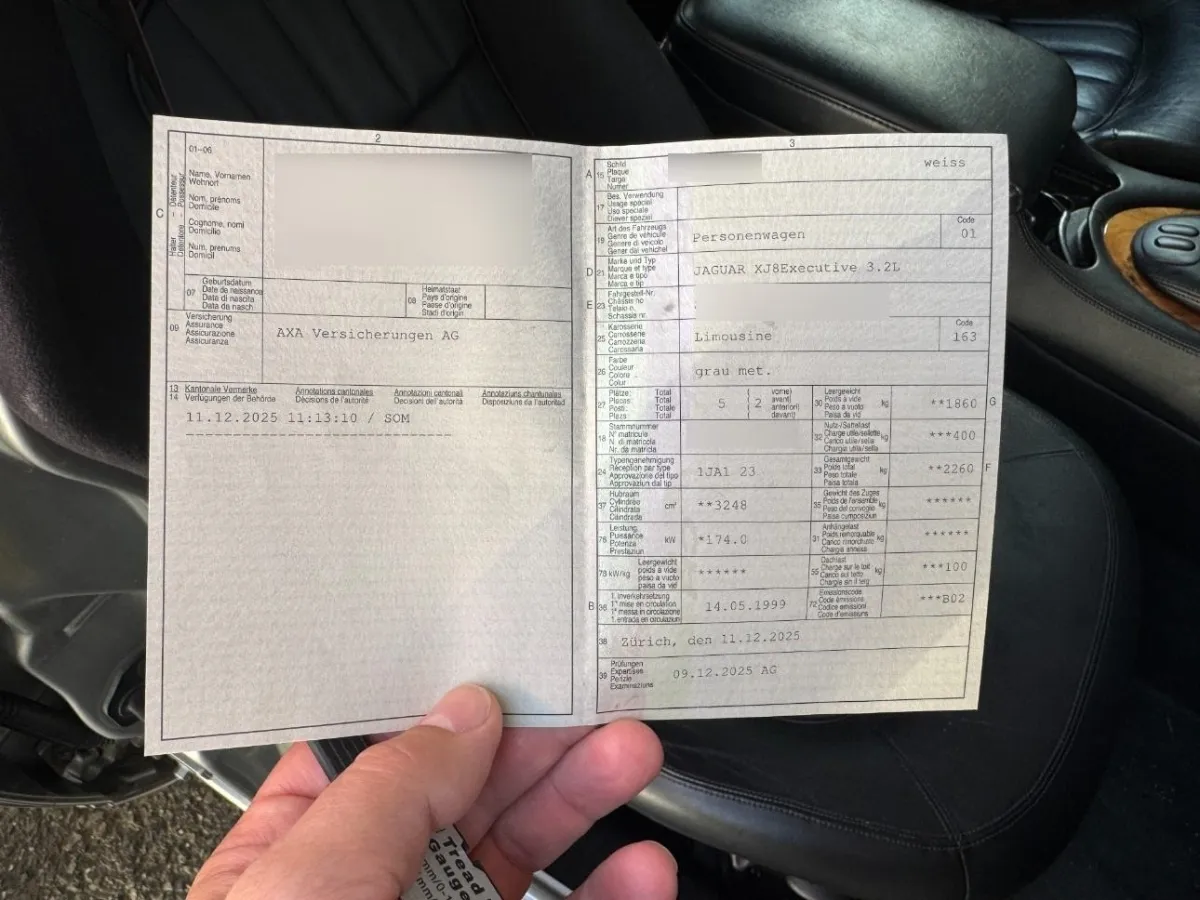 2
01-06
Name, Vornamen
Wohnort
Nom, prénoms
Domicile
Cognome, nomi
Domicilio
Num, prenums
Domicil
C
07
Geburtsdatum
Date de naissance
Data di nascita
Data da nasch
08
Heimatstaat
Pays d'origine
Paese d'origine
Stadi d'origin
09
Versicherung
Assurance
Assicurazione
Assicuranza
AXA Versicherungen AG
13
14
Kantonale Vermerke
Verfügungen der Behörde
Annotations cantonales
Décisions de l'autorité
Annotazioni cantonali
Decisioni dell'autorità
Annotaziuns chantunalas
Disposiziuns da l'autoritad
11.12.2025 11:13:10 / SOM
3
A
15
Schild
Plaque
Targa
Numer
weiss
17
Bes. Verwendung
Usage spécial
Uso speciale
Diever spezial
19
Art des Fahrzeugs
Genre de véhicule
Genere di veicolo
Gener dal vehichel
Personenwagen
Code
01
D
21
Marke und Typ
Marque et type
Marca e tipo
Marca e tip
JAGUAR XJ8Executive 3.2L
E
23
Fahrgestell-Nr.
Châssis no
Telaio n.
Schassis nr.
25
Karosserie
Carrosserie
Carrozzeria
Carossaria
Limousine
Code
163
26
Farbe
Couleur
Colore
Colur
grau met.
27
Plätze: Total
Places: Total
Posti: Totale
Plazs: Total
5 ( 2
vorne)
avant)
anteriori)
davant)
30
Leergewicht
Poids à vide
Peso a vuoto
Paisa da vid
kg
**1860
G
18
Stammnummer
N° matricule
N. di matricola
Nr. da matricla
32
Nutz-/Sattellast
Charge utile/sellette
Carico utile/sella
Chargia utila/sella
kg
***400
24
Typengenehmigung
Réception par type
Approvazione del tipo
Approvaziun dal tip
1JA1 23
33
Gesamtgewicht
Poids total
Peso totale
Paisa totala
kg
**2260
F
37
Hubraum
Cylindrée
Cilindrata
Cilindrada
cm³
**3248
35
Gewicht des Zuges
Poids de l'ensemble
Peso del convoglio
Paisa cumposiziun
kg
******
76
Leistung
Puissance
Potenza
Prestaziun
kW
*174.0
31
Anhängelast
Poids remorquable
Carico rimorchiato
Chargia annexa
kg
******
78 kW/kg
Leergewicht
poids à vide
peso a vuoto
paisa da vid
******
55
Dachlast
Charge sur le toit
Carico sul tetto
Chargia sin il tetg
kg
***100
B
36
1. Inverkehrsetzung
1ère mise en circulation
1a messa in circolazione
1. entrada en circulaziun
14.05.1999
72
Emissionscode
Code émissions
Codice emissioni
Code d'emissiuns
***B02
38
Zürich, den 11.12.2025
39
Prüfungen
Expertises
Perizie
Examinaziuns
09.12.2025 AG
Tread
Gauge